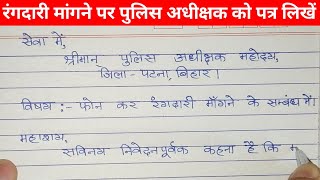 रंगदारी मांगने पर पुलिस अधीक्षक को पत्र लिखें
सेवा में,
श्रीमान पुलिस अधीक्षक महोदय,
जिला - पटना, बिहार।
विषय :- फोन कर रंगदारी माँगने के संबंध में।
महाशय,
सविनय निवेदनपूर्वक कहना है कि